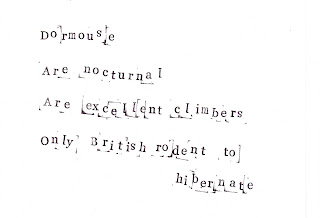 Dormouse
Are nocturnal
Are excellent climbers
Only British rodent to
hibernate